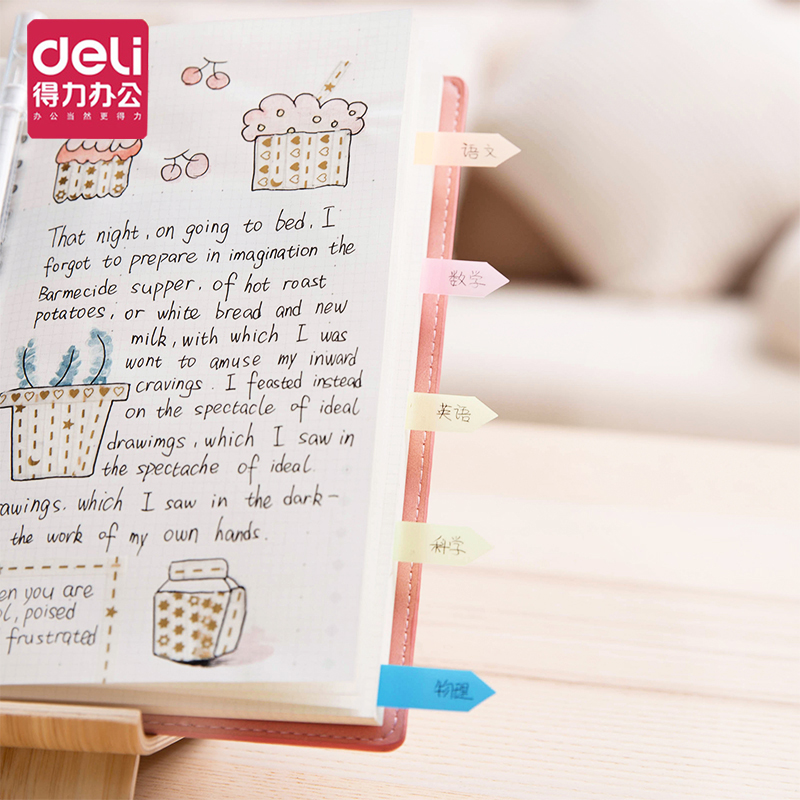 deli
得力办公
办公当然更得力
That night, on going to bed, I
forgot to prepare in imagination the
Barmecide supper, of hot roast
potatoes, or white bread and new
milk, with which I was
wont to amuse my inward
cravings. I feasted instead
on the spectacle of ideal
drawimgs, which I saw in
the spectache of ideal.
awings. which I saw in the dark-
the work of my own hands.
en you are
ol, poised
frustrated
语文
数学
英语
科学
物理